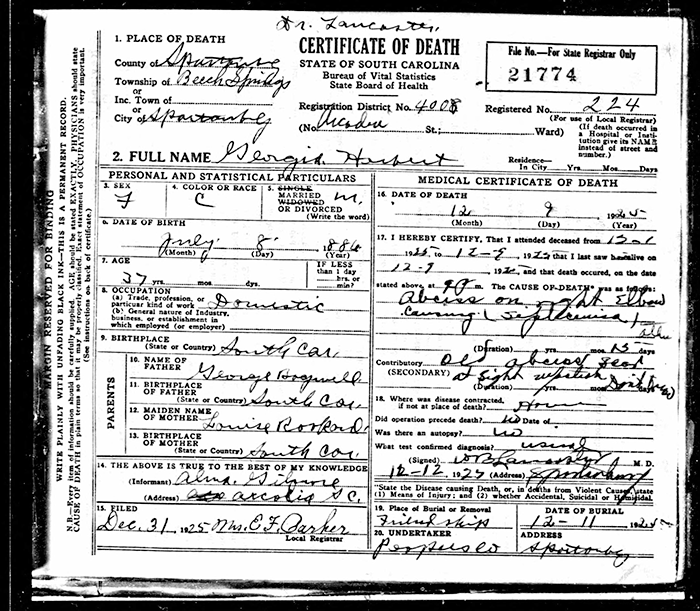 Dr. Lancaster
1. PLACE OF DEATH
County of Spartanbg
Township of Beech Springs
or
Inc. Town of
or
City of Spartanbg
CERTIFICATE OF DEATH
STATE OF SOUTH CAROLINA
Bureau of Vital Statistics
State Board of Health
File No.—For State Registrar Only
21774
Registration District No. 4008
Registered No. 224
(No. Arcadia St.; Ward)
(For use of Local Registrar)
(If death occurred in
a Hospital or Insti-
tution give its NAME
instead of street and
number.)
2. FULL NAME Georgia Herbert
Residence—
In City Yrs. Mos. Days
PERSONAL AND STATISTICAL PARTICULARS
3. SEX
F
4. COLOR OR RACE
C
5. SINGLE
MARRIED
WIDOWED
OR DIVORCED
(Write the word)
M.
6. DATE OF BIRTH
July 8 1886
(Month) (Day) (Year)
7. AGE
37 yrs. mos. dys.
IF LESS
than 1 day
hrs. or
min.?
8. OCCUPATION
(a) Trade, profession, or
particular kind of work
Domestic
(b) General nature of Industry,
business, or establishment in
which employed (or employer)
9. BIRTHPLACE
(State or Country) South Car.
PARENTS
10. NAME OF
FATHER
George
11. BIRTHPLACE
OF FATHER
(State or Country) South Car.
12. MAIDEN NAME
OF MOTHER
Louise
13. BIRTHPLACE
OF MOTHER
(State or Country) South Car.
14. THE ABOVE IS TRUE TO THE BEST OF MY KNOWLEDGE
(Informant) Alma Gilmore
(Address) Arcadia S.C.
15. FILED
Dec. 31 1925 Mrs. E. F. Parker
Local Registrar
MEDICAL CERTIFICATE OF DEATH
16. DATE OF DEATH
12 9 1925
(Month) (Day) (Year)
17. I HEREBY CERTIFY, That I attended deceased from 12-1
1925, to 12-9 1925 that I last saw her alive on
12-9 192 , and that death occurred, on the date
stated above, at M. The CAUSE OF DEATH* was as follows:
Abcess on right Elbow
causing (Septecemia)
(Duration) yrs. mos. 15 days
Contributory Old abcess
(SECONDARY) at right
(Duration) yrs. mos.
18. Where was disease contracted,
if not at place of death? Home
Did operation precede death? no Date of
Was there an autopsy? no
What test confirmed diagnosis? usual
(Signed) M. D.
12-12 1925 (Address) Spartanburg
*State the Disease causing Death, or, in deaths from Violent Causes, state
(1) Means of Injury; and (2) whether Accidental, Suicidal or Homicidal.
19. Place of Burial or Removal
Friendship
DATE OF BURIAL
12-11 1925
20. UNDERTAKER
Peoples Co
ADDRESS
Spartanbg
MARGIN RESERVED FOR BINDING
WRITE PLAINLY WITH UNFADING BLACK INK—THIS IS A PERMANENT RECORD.
N.B.—Every item of information should be carefully supplied. AGE should be stated EXACTLY. PHYSICIANS should state
CAUSE OF DEATH in plain terms so that it may be properly classified. Exact statement of OCCUPATION is very important.
(See instructions on back of certificate.)